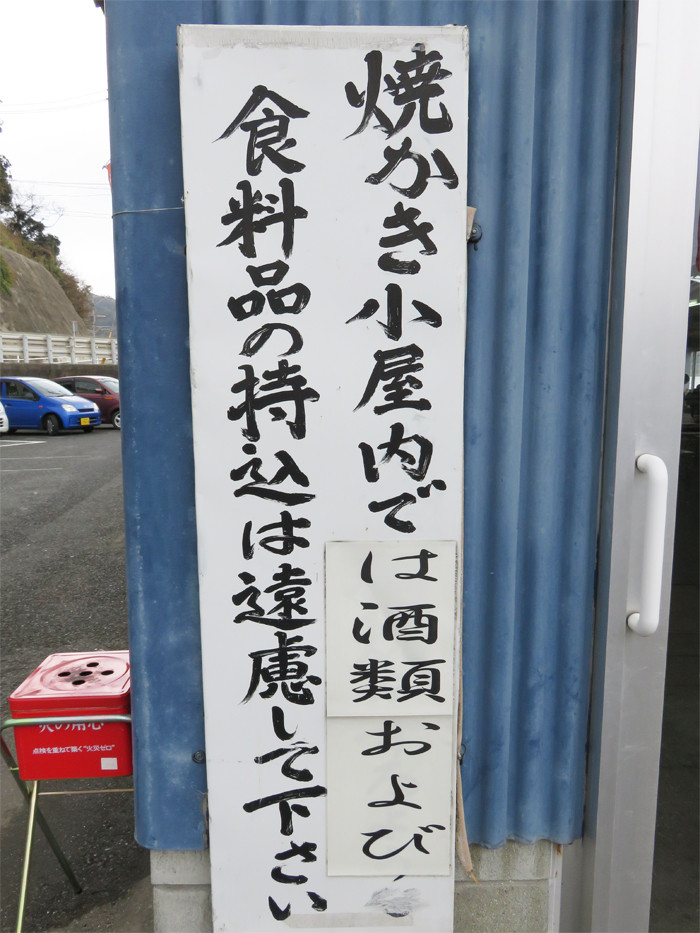 焼かき小屋内では酒類および
食料品の持込は遠慮して下さい
火の用心
点検を重ねて築く"火災ゼロ"